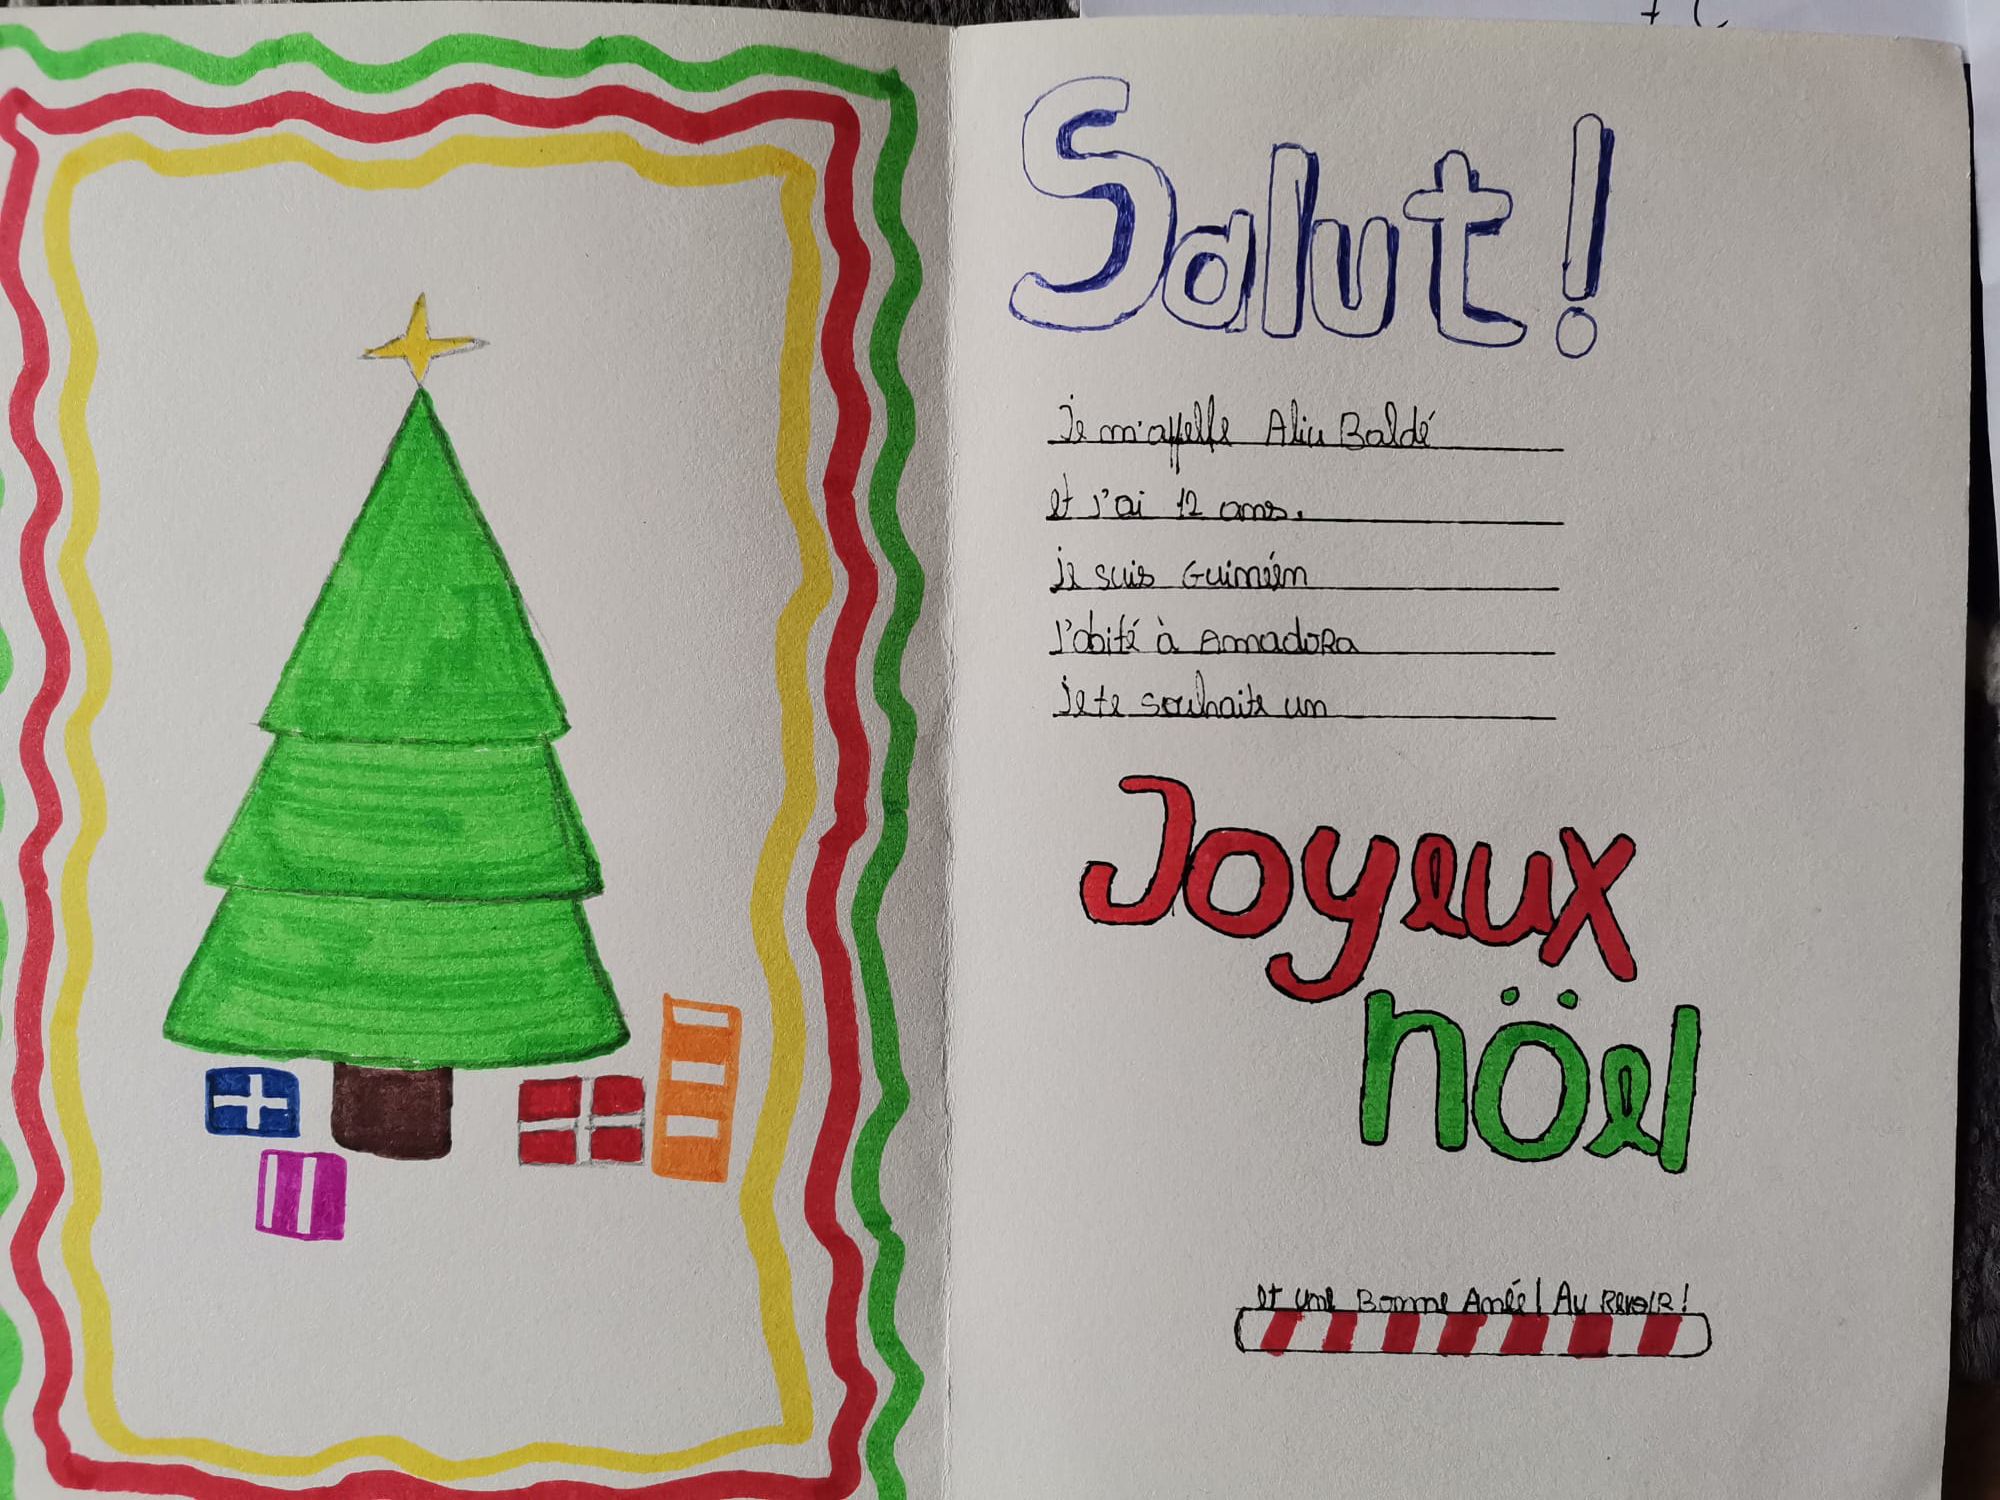 Salut!
Je m'appelle Aliu Baldé
et J'ai 12 ans.
Je suis Guinéen
J'abité à Amadora
Je te souhaite un
Joyeux
nöel
et une Bonne Anéé! Au Revoir!